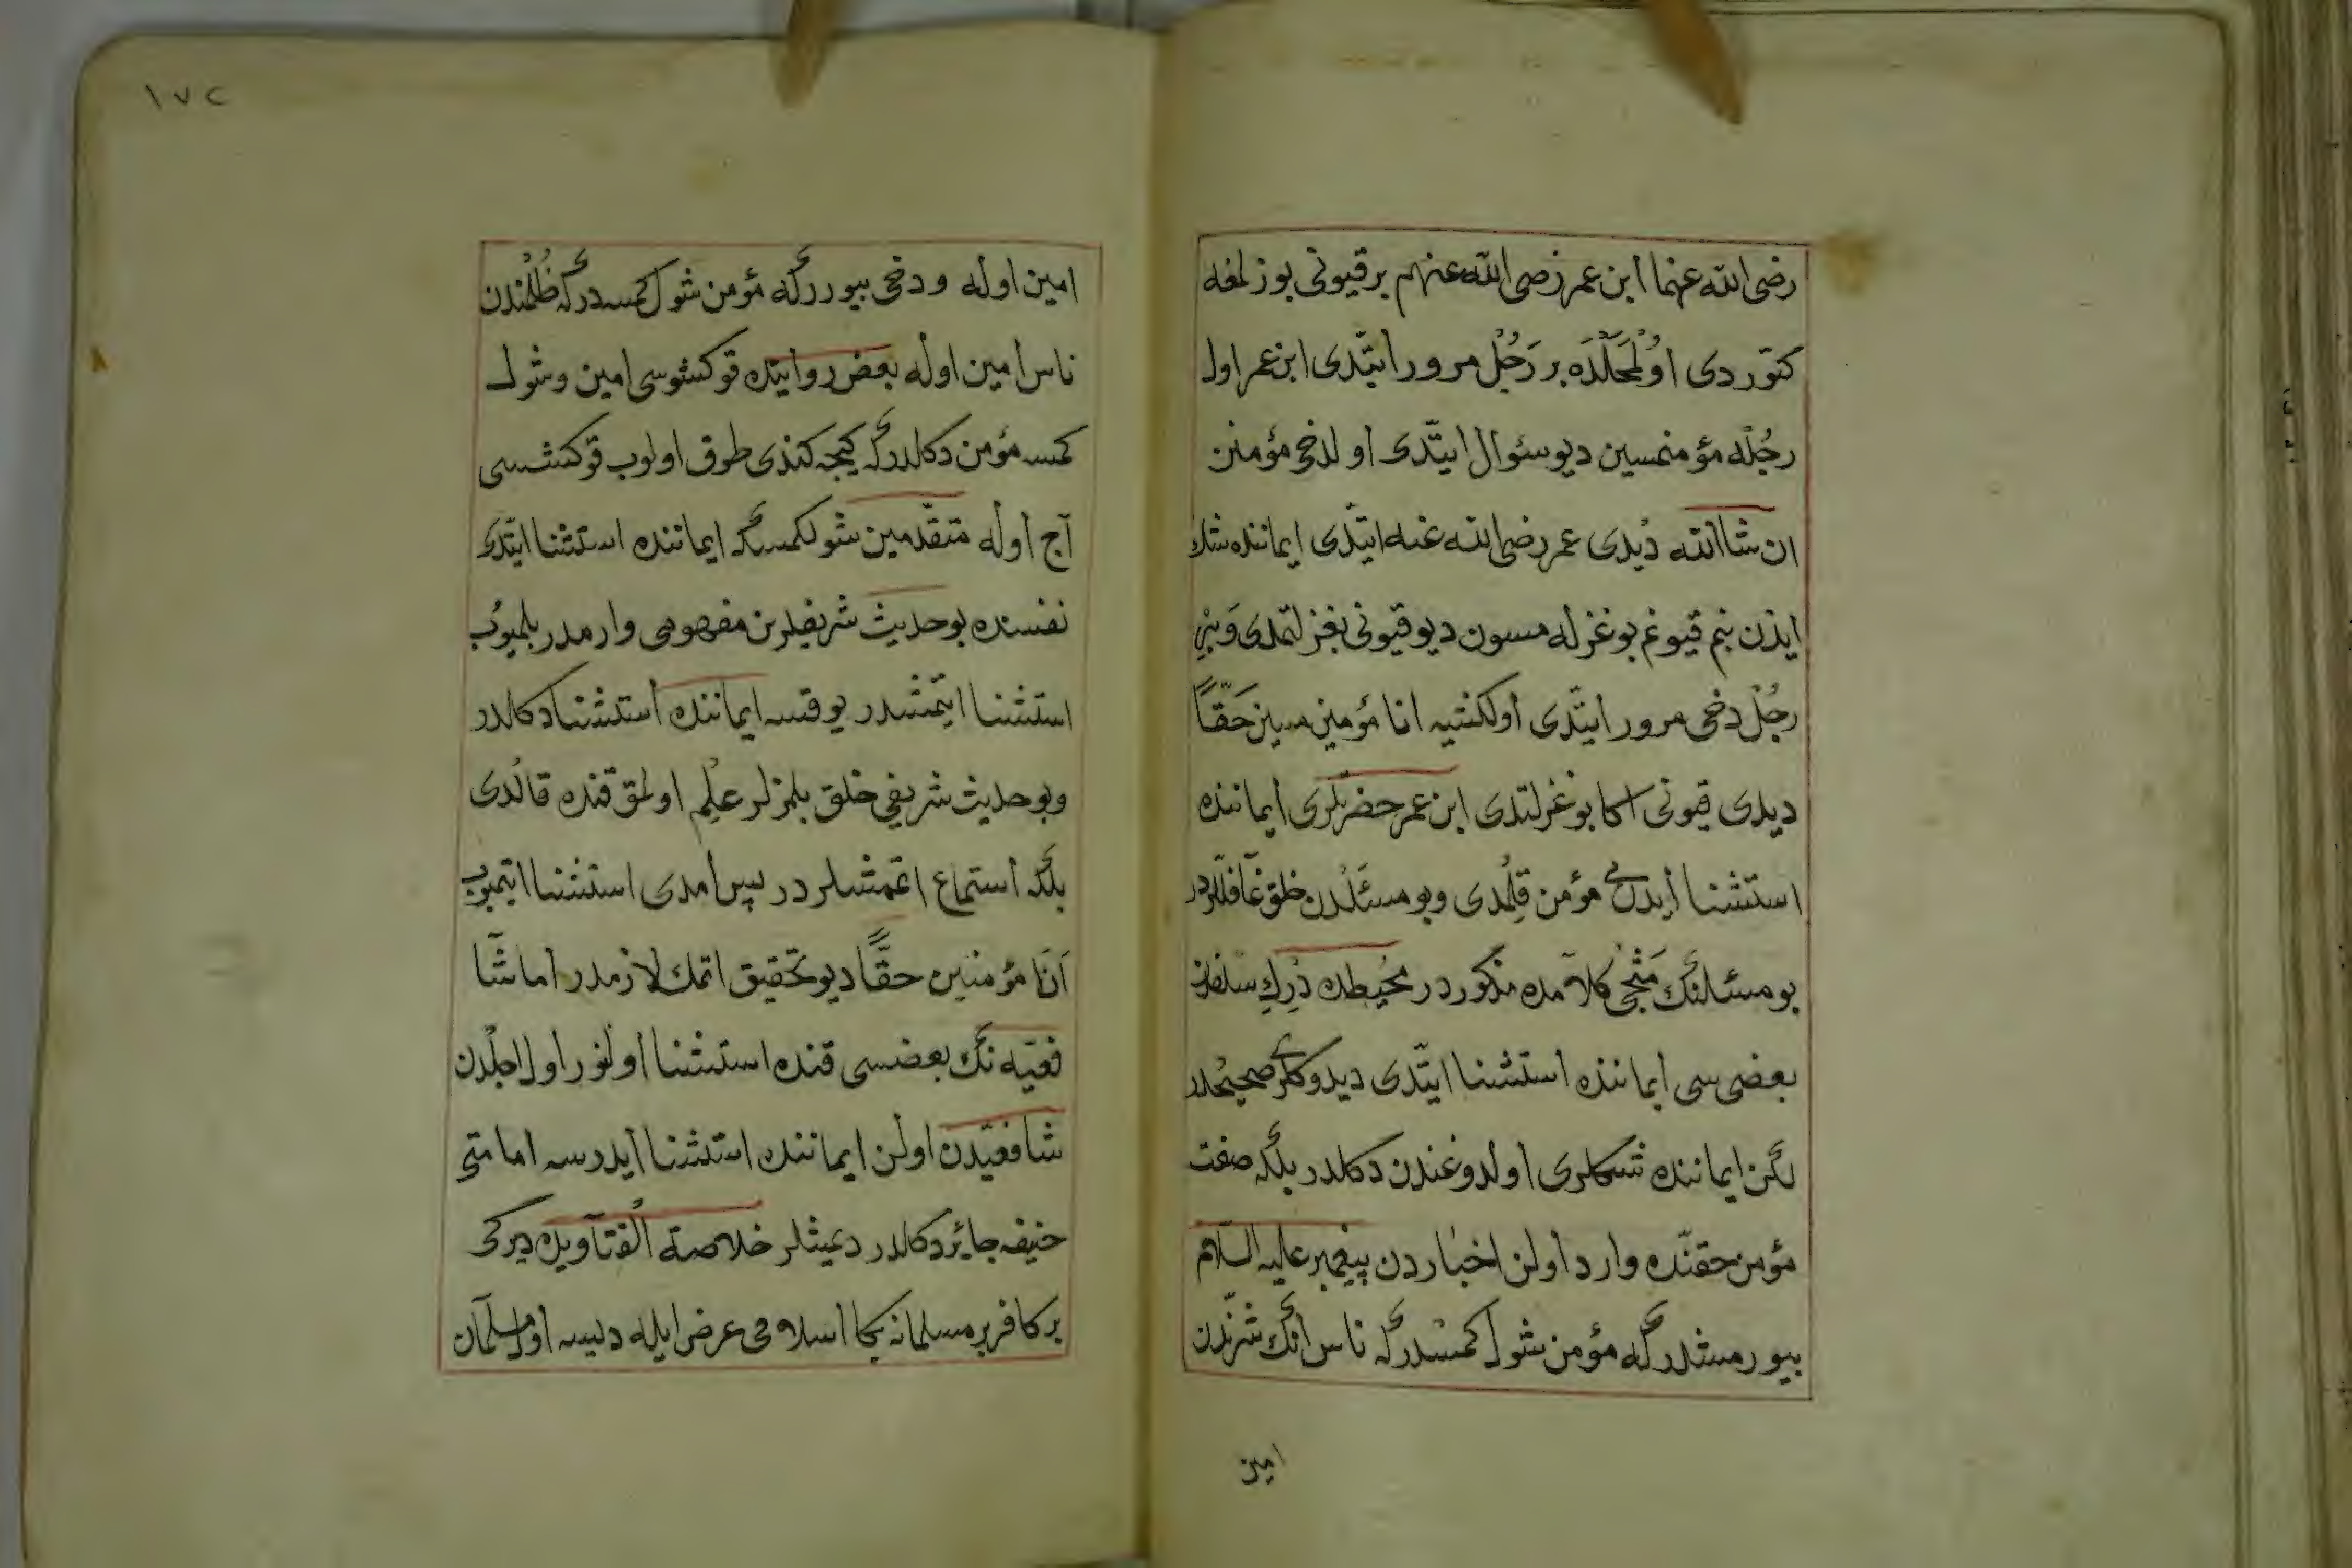 رضی الله عنهما ابن عمر رضی الله عنهم بر قیونی بوزلمغه
کتوردی اولمحلده بر رجل مرور ایتدی ابن عمر اول
رجله مؤمنمسین دیو سئوال ایتدی اولدخی مؤمنن
ان شاالله دیدی عمر رضی الله عنه ایتدی ایماننده شك
ایدن بنم قیونم بوغزله مسون دیو قیونی بغزلتمدی و بر
رجل دخی مرور ایتدی اولکشیه انا مؤمین مسین حقا
دیدی قیونی اکا بوغزلتدی ابن عمر حضرتلری ایماننده
استثنا ایدنی مؤمن قلمدی وبو مسئلدن خلق غافللردر
بو مسئلنك کلامده مذکوردر محیطده درک سلفدن
بعضی سی ایماننده استثنا ایتدی دیدوکلری صحیحدر
لکن ایماننده شکلری اولدوغندن دکلدر بلکه صفت
مؤمن حقنده وارد اولن اخباردن پیغمبر علیه السلام
بیورمشدر که مؤمن شول کمسدر که ناس انك شرندن
امین
١٧٢
امین اوله ودخی بیوررکه مؤمن شول کمسدر که ظلمندن
ناس امین اوله بعض روایتده قوکشوسی امین وشول
کمسه مؤمن دکلدر که کیجه کندی طوق اولوب قوکشسی
آج اوله متقدمین شولکمسکه ایماننده استثنا ایتدی
نفسنده بو حدیث شریفلرن مفهومی وارمدر بلمیوب
استثنا ایتمشدر یوقسه ایماننده استثنا دکلدر
وبو حدیث شریفی خلق بلمزلر علم اولمق قنده قالدی
بلکه استماع اتممشلردر پس امدی استثنا ایتمیوب
انا مؤمنین حقا دیو تحقیق اتمك لازمدر اما شا
فعیه نك بعضسی قنده استثنا اولنور اول اجلدن
شافعیدن اولن ایماننده استثنا ایدرسه اما متی
حنیفه جایز دکلدر دیمشلر خلاصة الفتاویده دیرکی
بر کافر بر مسلمانه بکا اسلامی عرض ایله دیسه اول مسلمان